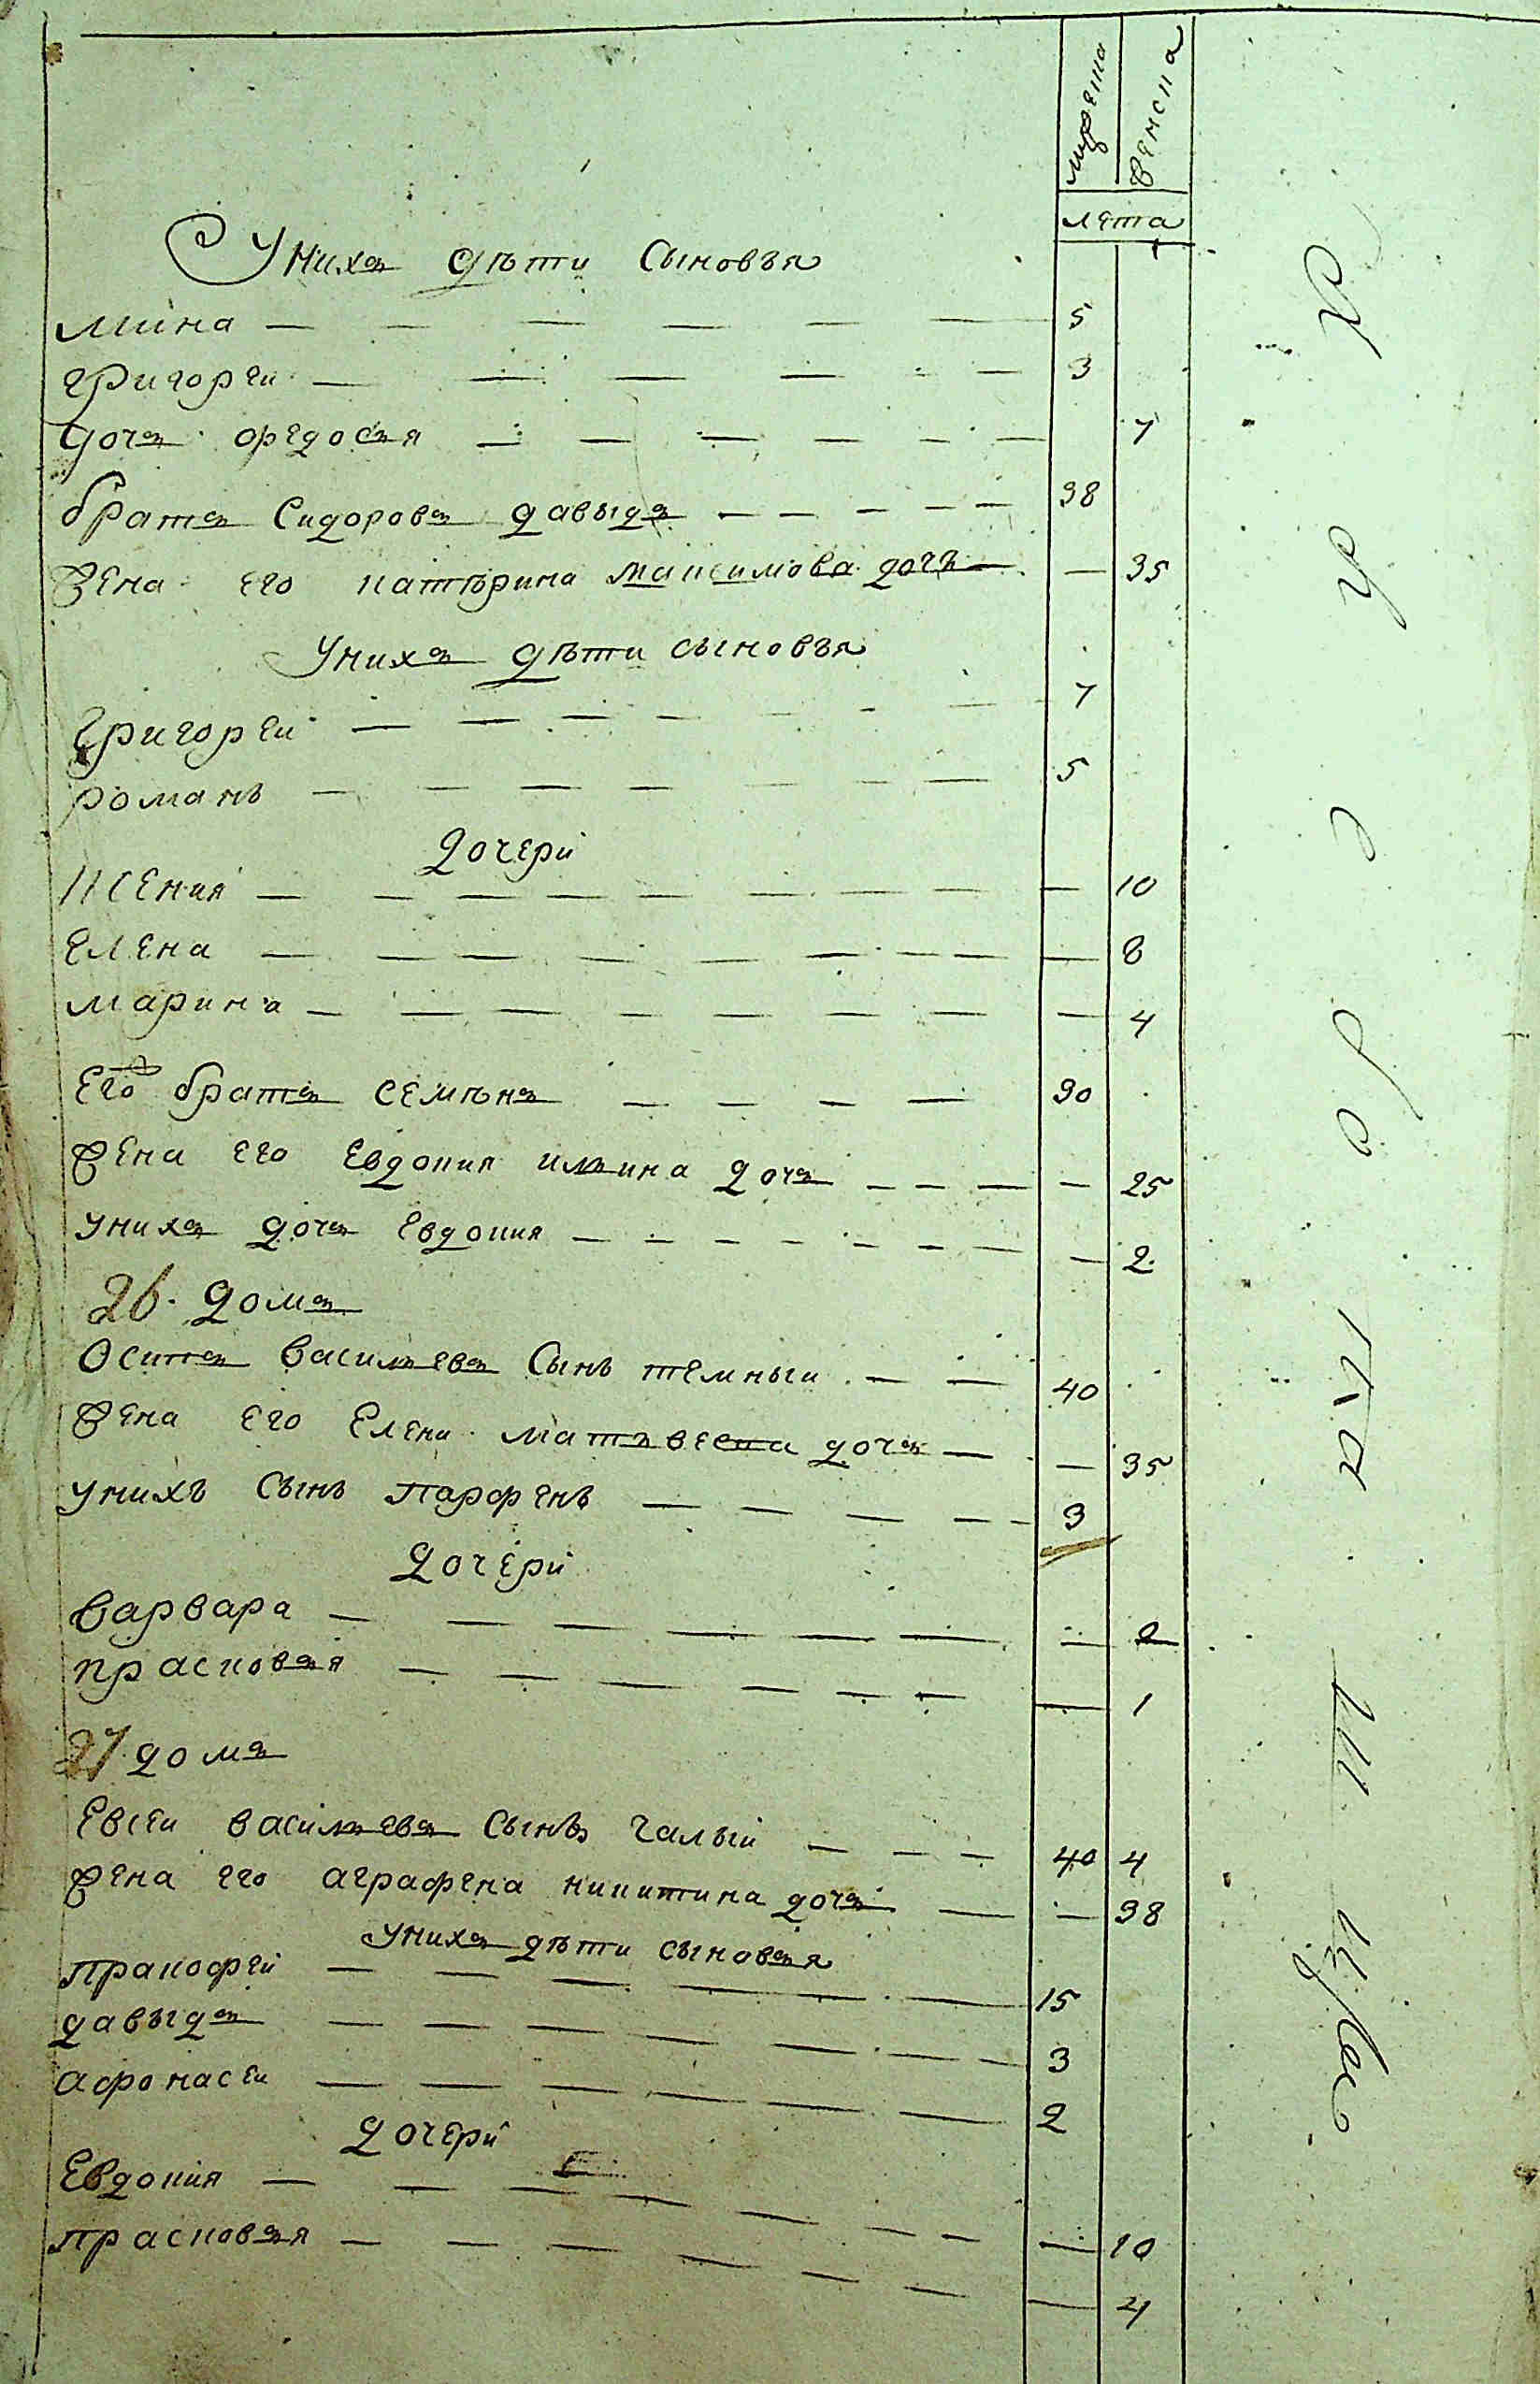 мужеска женска
лета
У нихъ дѣти сыновья
Мина — — — — — — 5
григореи — — — — — 3
дочь Федосья — — — — — — 7
братъ Сидоровъ давыдъ — — — — — 38
жена его катѣрина максимова дочь — — 35
У нихъ дѣти сыновья
григореи — — — — — — — 7
романъ — — — — — — — 5
Дочери
ксения — — — — — — — — — 10
Елена — — — — — — — — — 8
марина — — — — — — — — 4
Его братъ семѣнъ — — — — 30
жена его Евдокия ильина дочь — — — — 25
у нихъ дочь Евдокия — — — — — — — — 2
26. домъ
Осипъ васильевъ Сынъ темныи — — 40
жена его Елена матьвеева дочь — — 35
у нихъ Сынъ парфенъ — — — — 3
Дочери
варвара — — — — — — — 2
прасковья — — — — — — — 1
27 домъ
Евсеи васильевъ Сынъ чалыи — — — 40 4
жена его аграфена никитина дочь — — 38
У нихъ дѣти сыновья
пракофеи — — — — — — 15
давыдъ — — — — — — — 3
афонасеи — — — — — — 2
дочери
Евдокия — — — — — — — — 10
прасковья — — — — — — — 4